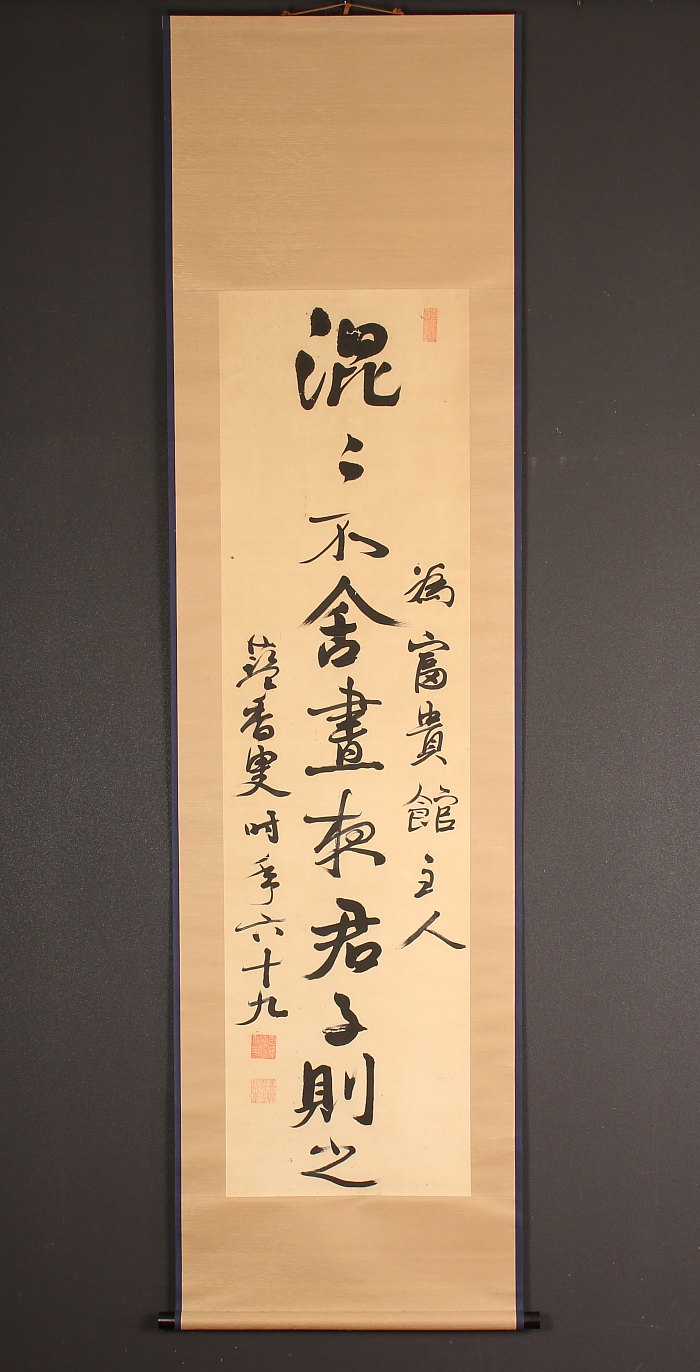 為富貴館主人
混〻不舍晝夜君子則之
香叟時年六十九